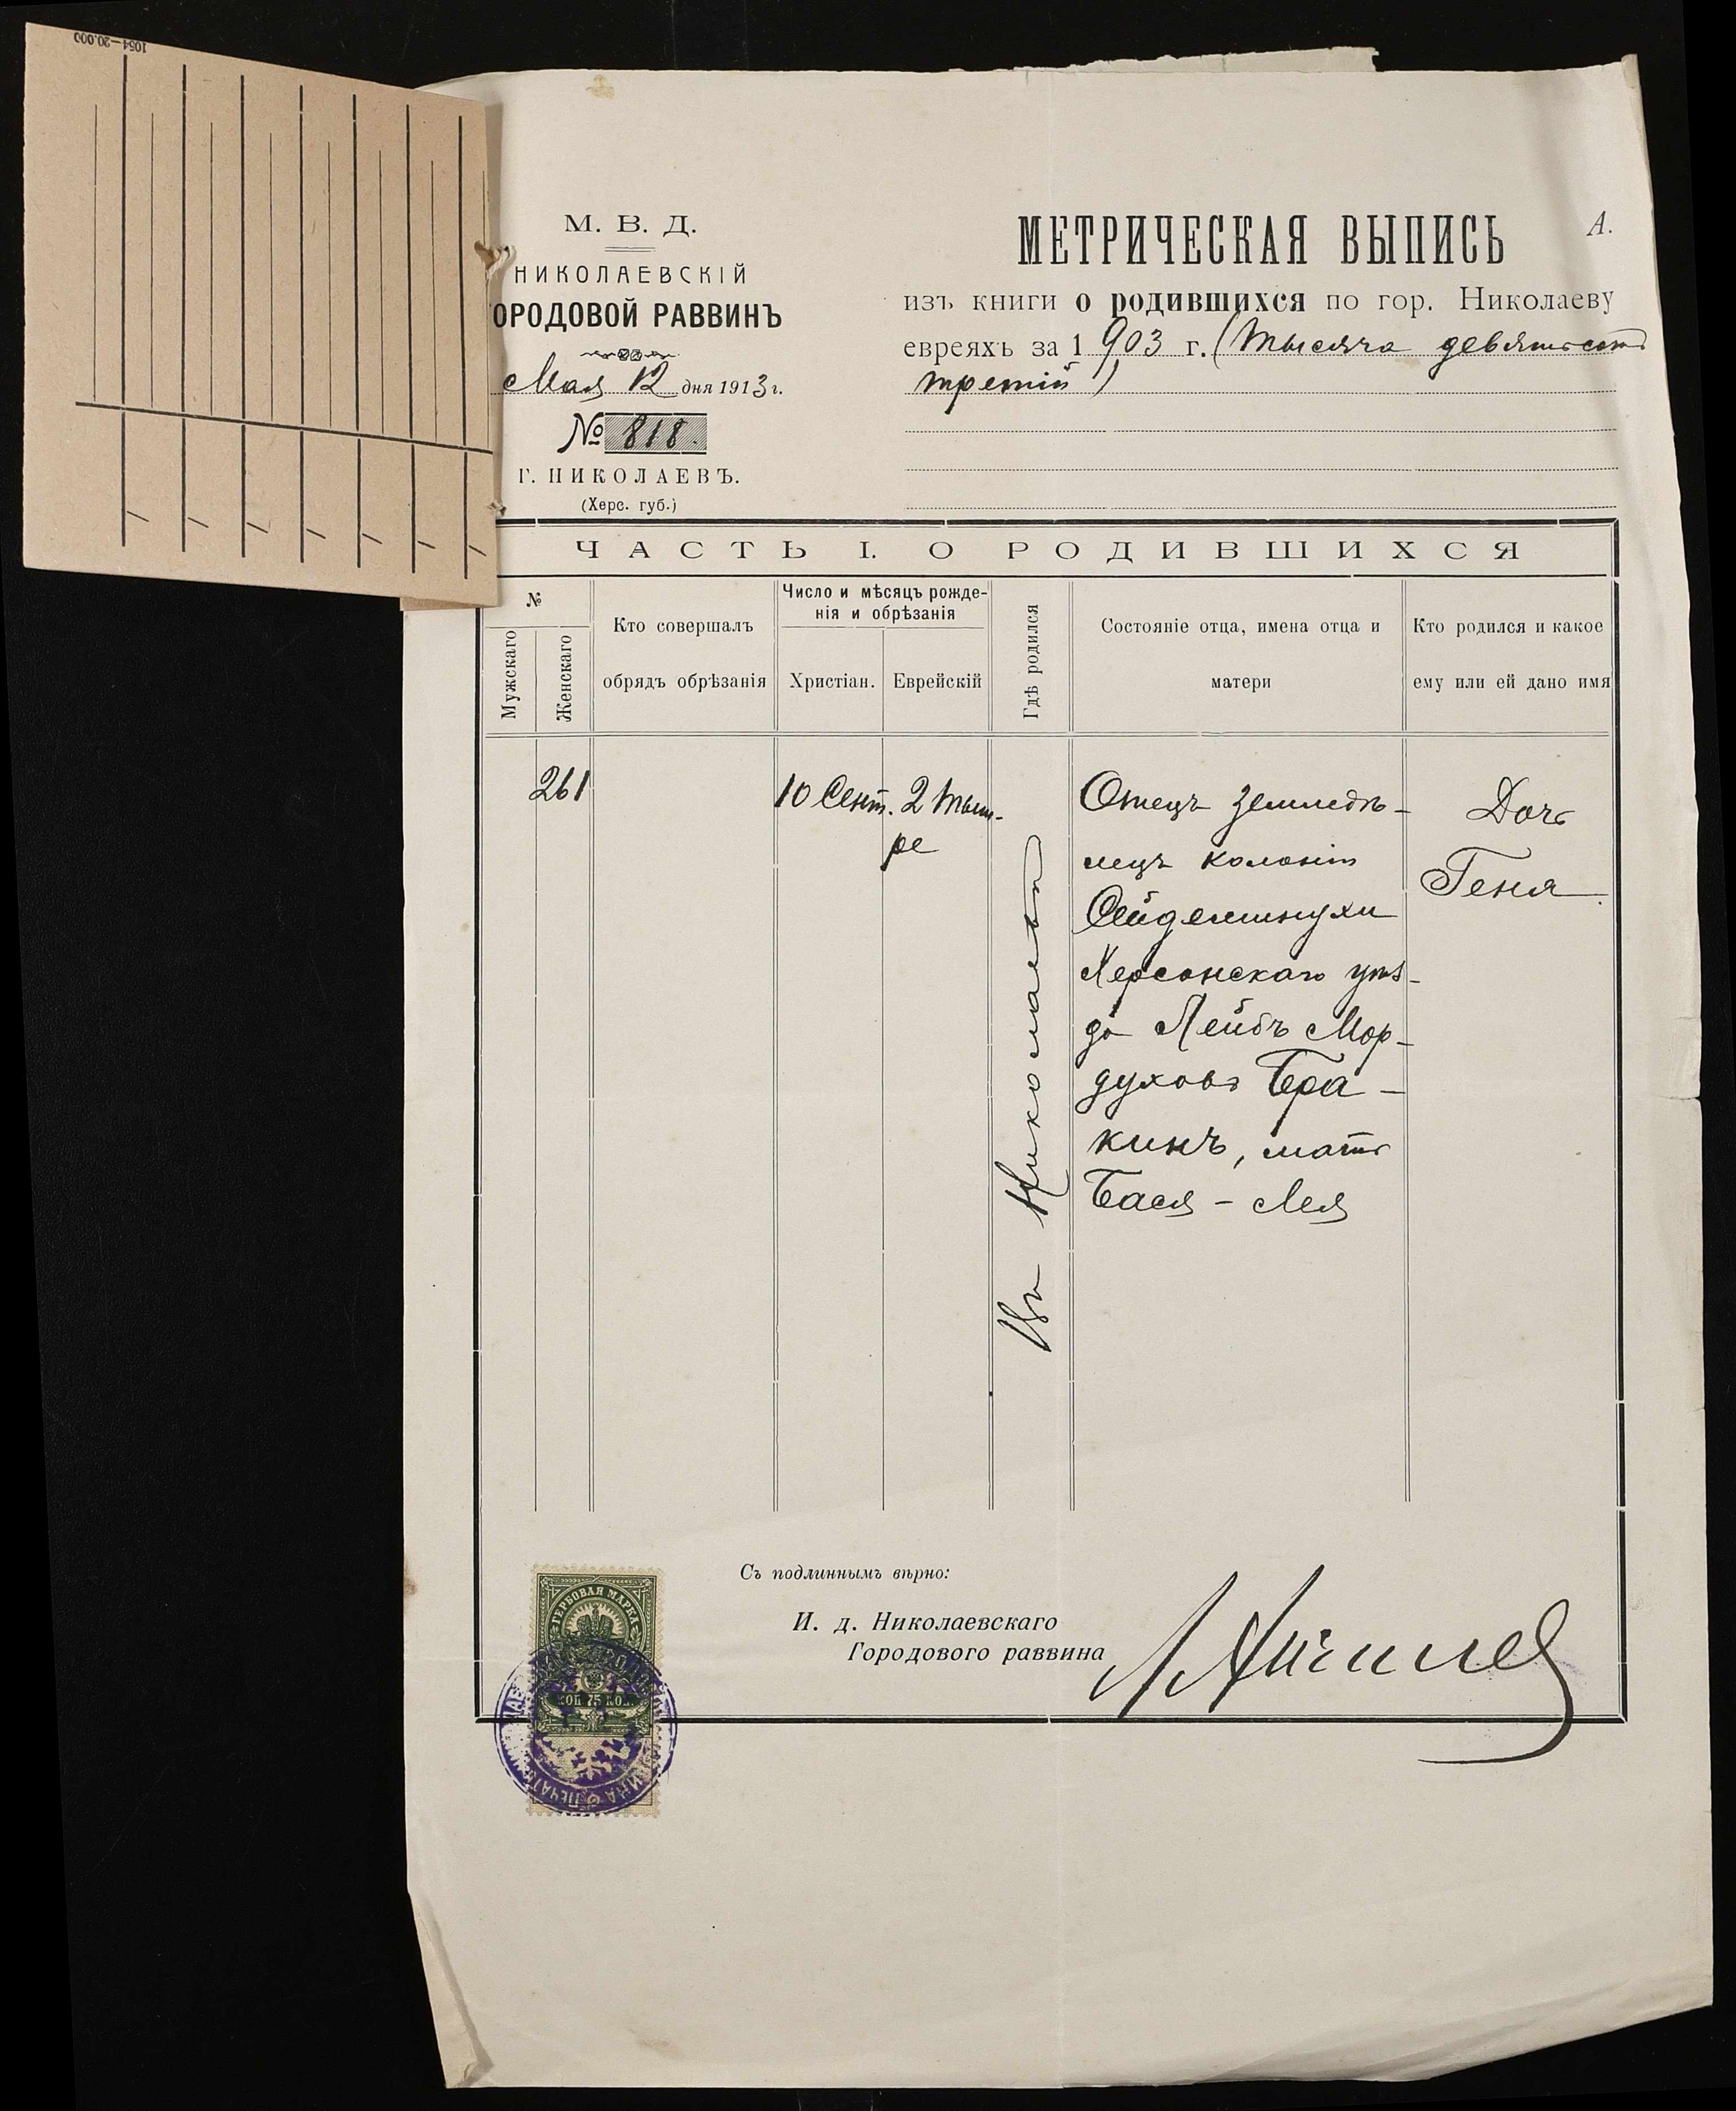 1054—20.000
М. В. Д.
НИКОЛАЕВСКІЙ
ОРОДОВОЙ РАВВИНЪ
Мая 12 дня 1913 г.
№ 818.
Г. НИКОЛАЕВЪ.
(Херс. губ.)
МЕТРИЧЕСКАЯ ВЫПИСЬ
А.
изъ книги о родившихся по гор. Николаеву
евреяхъ за 1903 г. (тысяча девятьсотъ
третій)
ЧАСТЬ I. О РОДИВШИХСЯ
№
Мужскаго
Женскаго
Кто совершалъ
обрядъ обрѣзанія
Число и мѣсяцъ рожде-
нія и обрѣзанія
Христіан.
Еврейскій
Гдѣ родился
Состояніе отца, имена отца и
матери
Кто родился и какое
ему или ей дано имя
261
10 Сент.
2 Тыш-
ре
Въ Николаевѣ
Отецъ землед­ѣ-
лецъ колоніи
Сейдеминухи
Херсонскаго уѣз-
да Лейбъ Мор-
духовъ Бра-
кинъ, мать
Бася - Лея
Дочь
Геня
Съ подлиннымъ вѣрно:
И. д. Николаевскаго
Городового раввина
ГЕРБОВАЯ МАРКА
КОП 75 КОП.
ПЕЧАТЬ